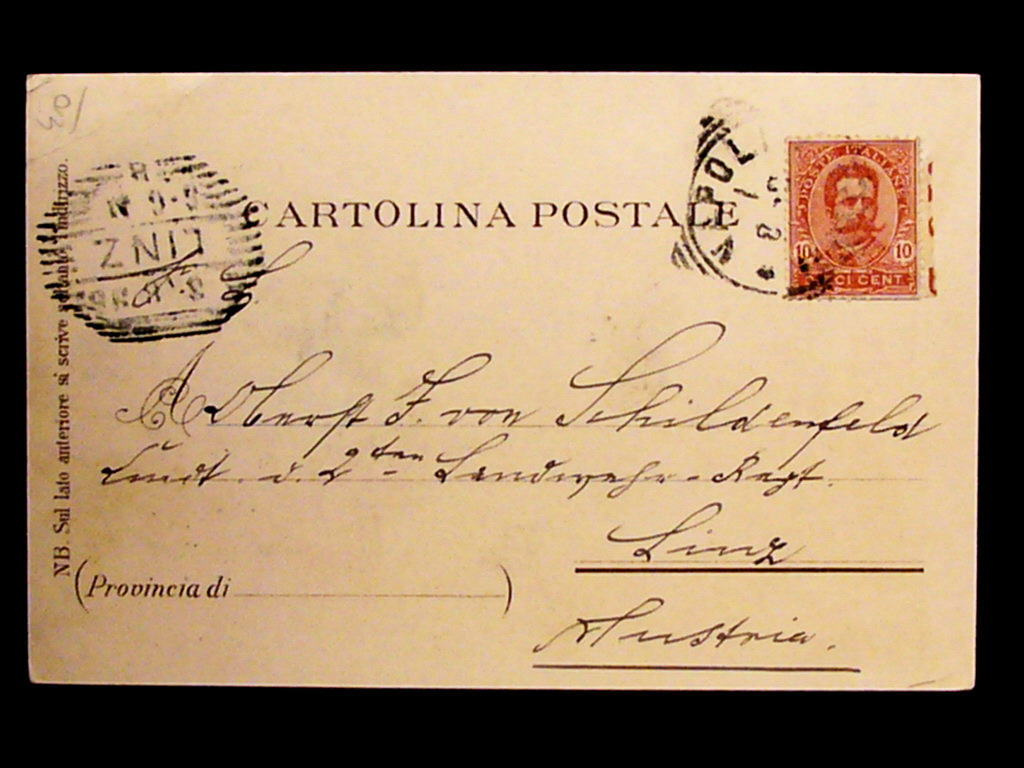 CARTOLINA POSTALE
POSTE ITALIANE
10 10
DIECI CENT
LINZ
NB. Sul lato anteriore si scrive soltanto l'indirizzo.
A Oberst F. von Schildenfeld
d. 2ten Landwehr-Regt.
Linz
(Provincia di)
Austria.